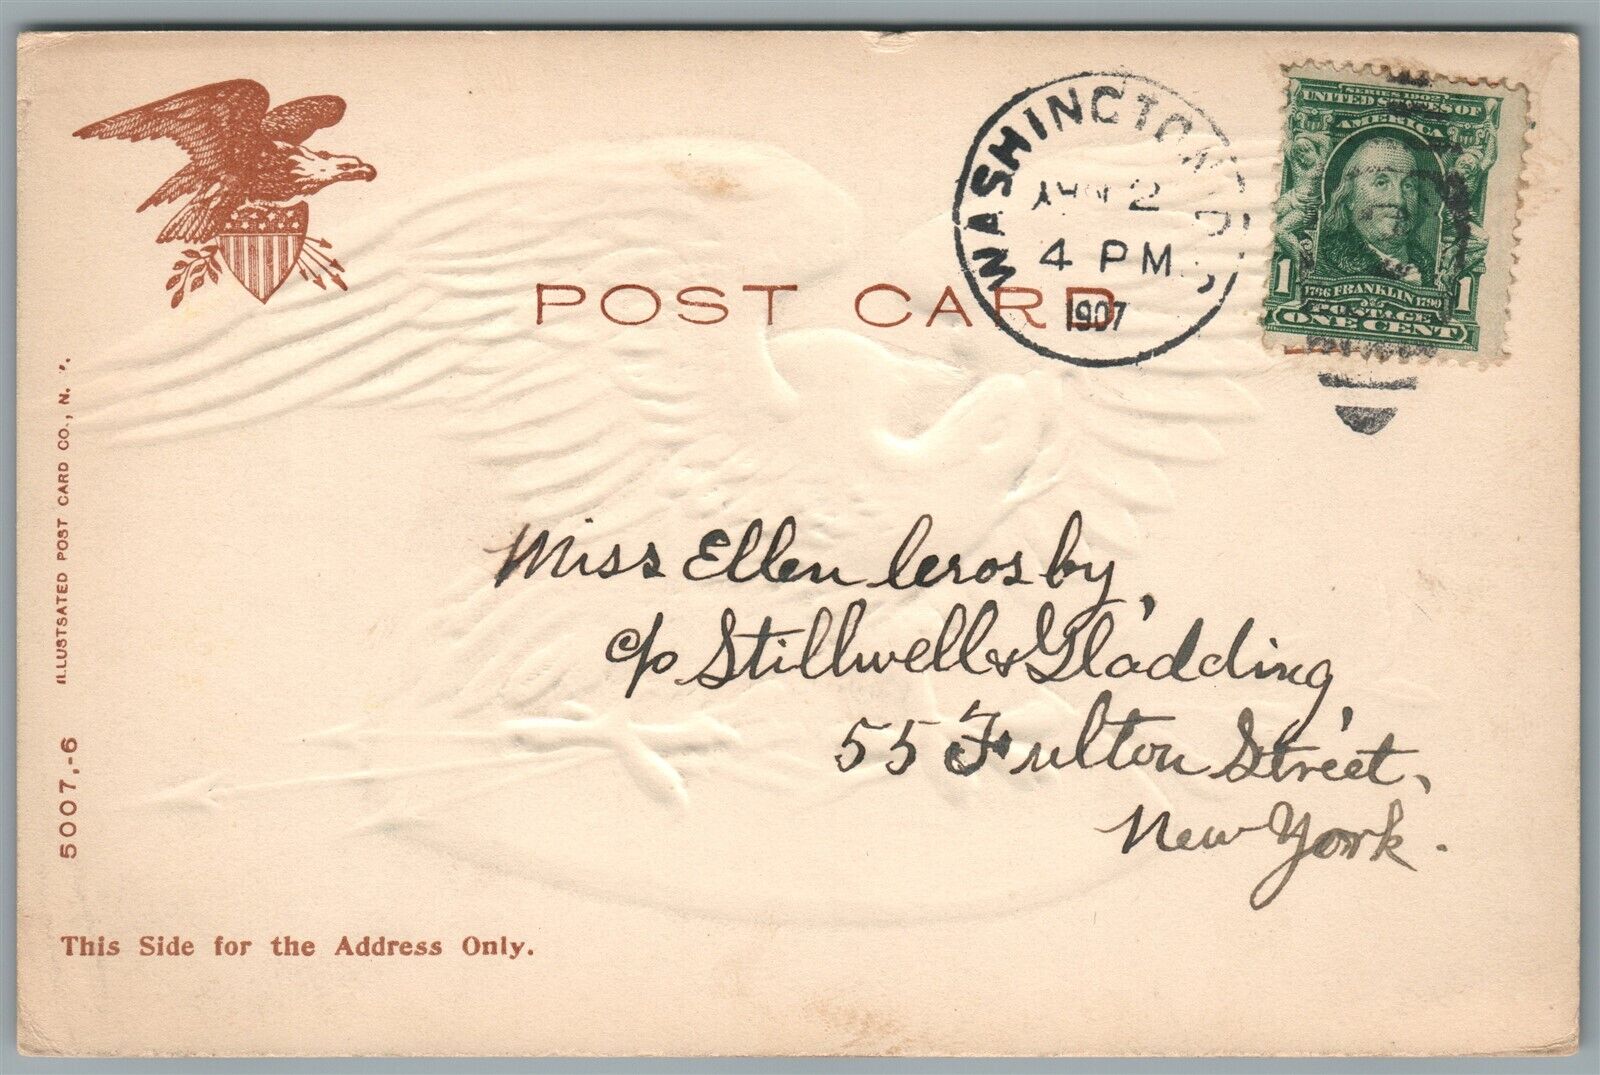 POST CARD
WASHINGTON, D.C.
2
4 PM
1907
SERIES 1902
UNITED STATES OF
AMERICA
1 1
1706 FRANKLIN 1790
POSTAGE
ONE CENT
Miss Ellen Crosby,
c/o Stillwell & Gladding,
55 Fulton Street,
New York.
ILLUSTSATED POST CARD CO., N.
5007,-6
This Side for the Address Only.